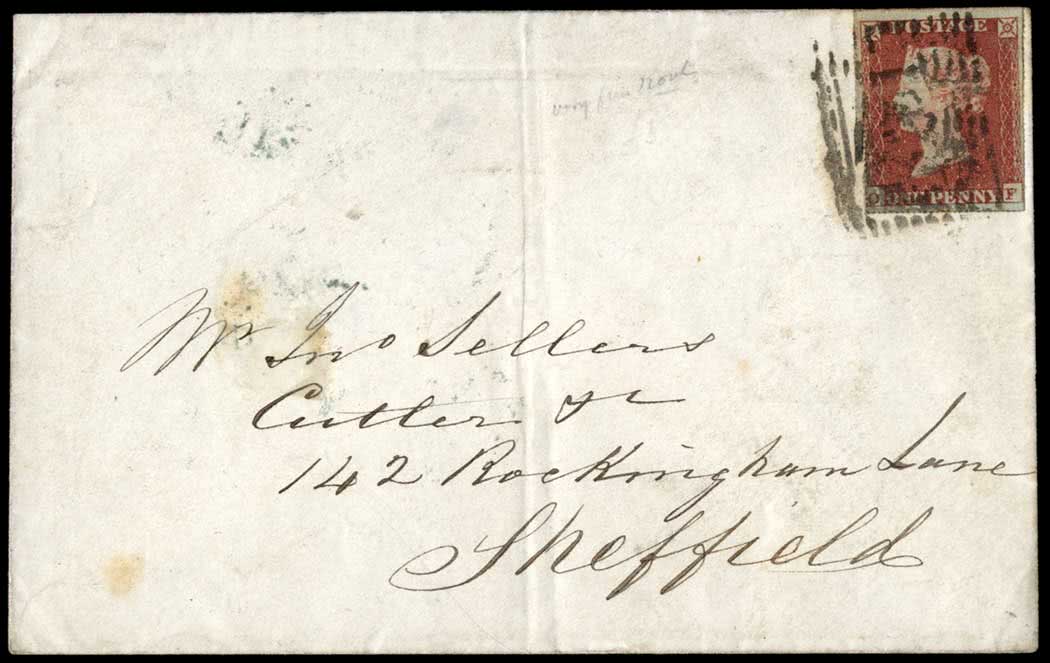 POSTAGE
ONE PENNY
O F
very fine
Mr Jno Sellers
Cutler &c
142 Rockingham Lane
Sheffield